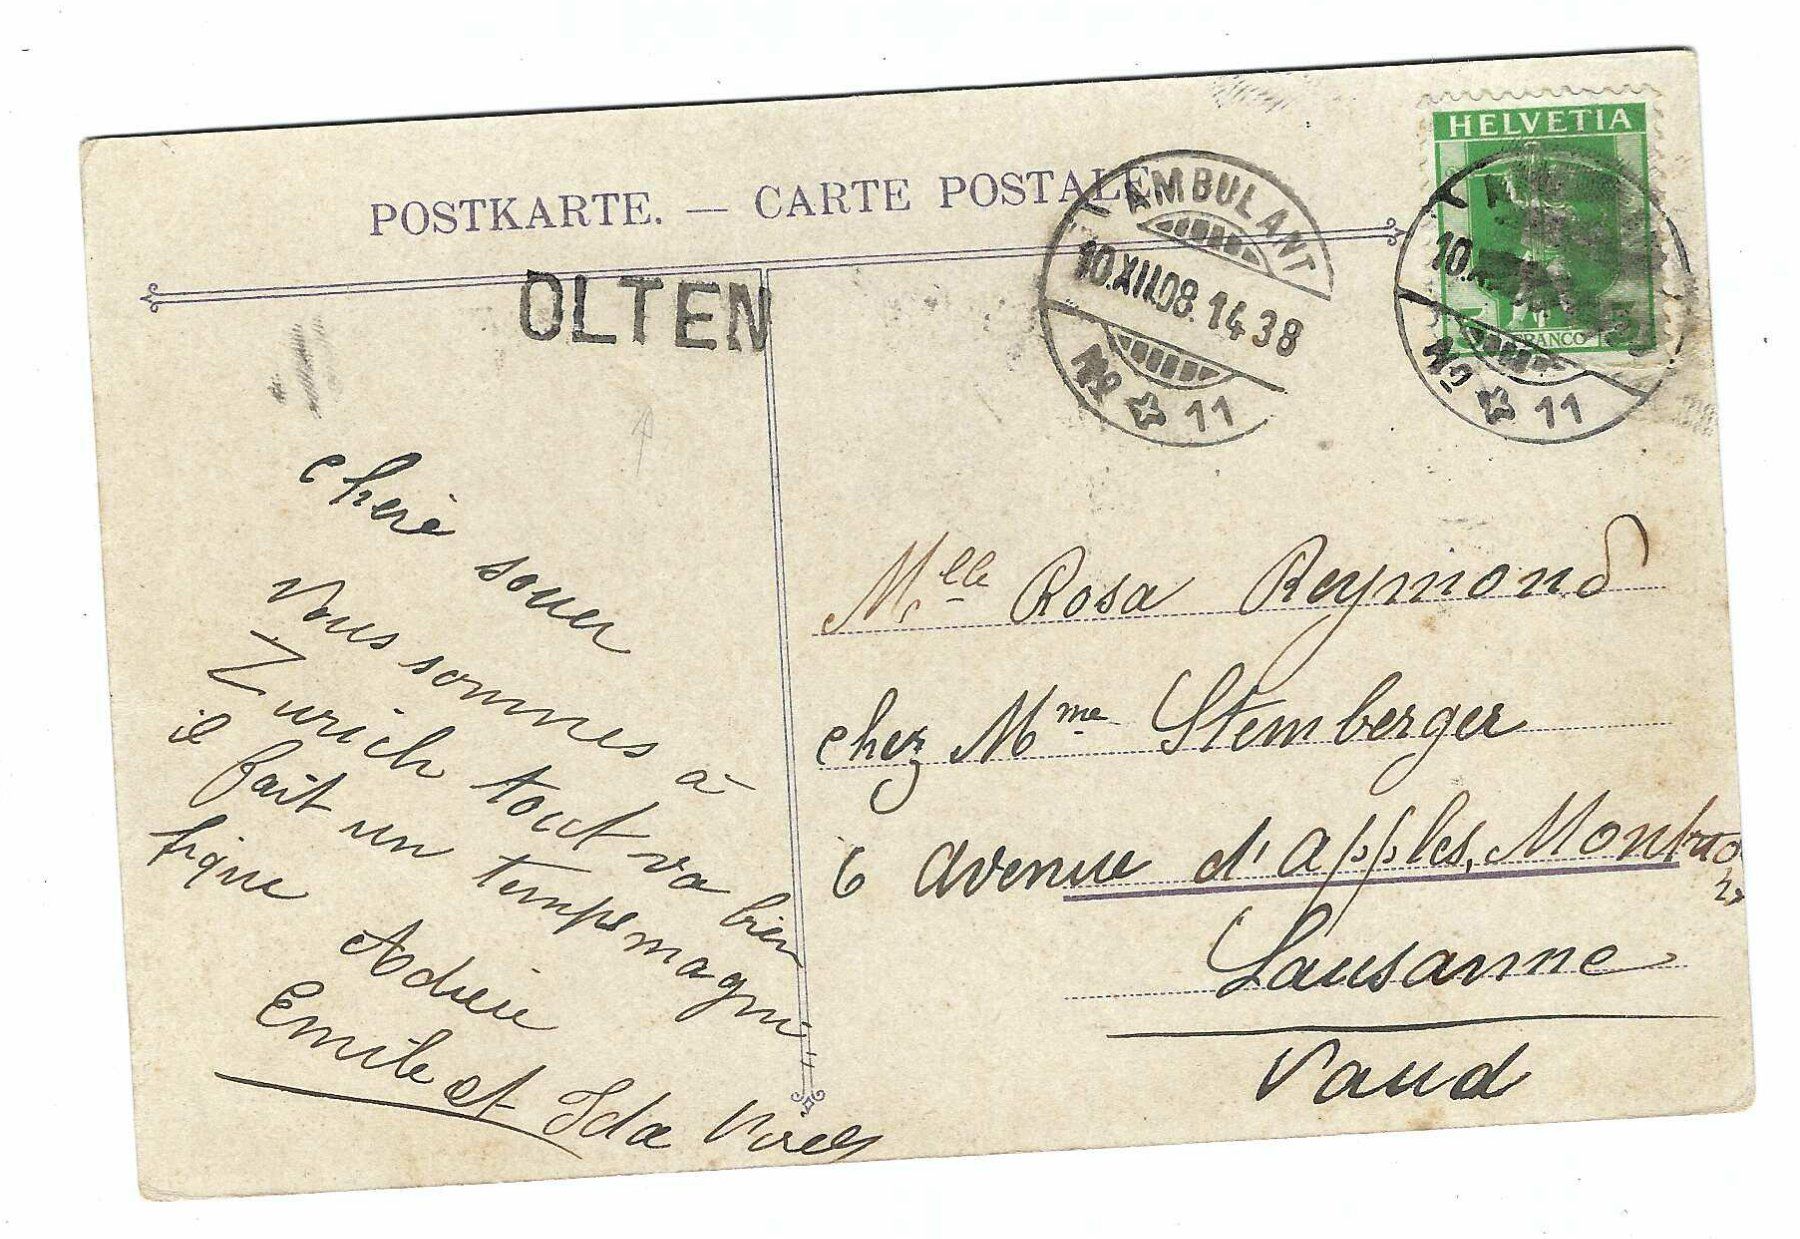 POSTKARTE. — CARTE POSTALE
HELVETIA
FRANCO
OLTEN
AMBULANT
10.XII.08.14 38
No 11
10.
No 11
cherè souer
Vous sommes à
Zurich tout va bien
il fait un temps magni"
fique
Adieu
Emile et Ida
Mlle Rosa Reymond
chez Mme Stemberger
6 Avenue d'Apples, 
Lausanne
Vaud